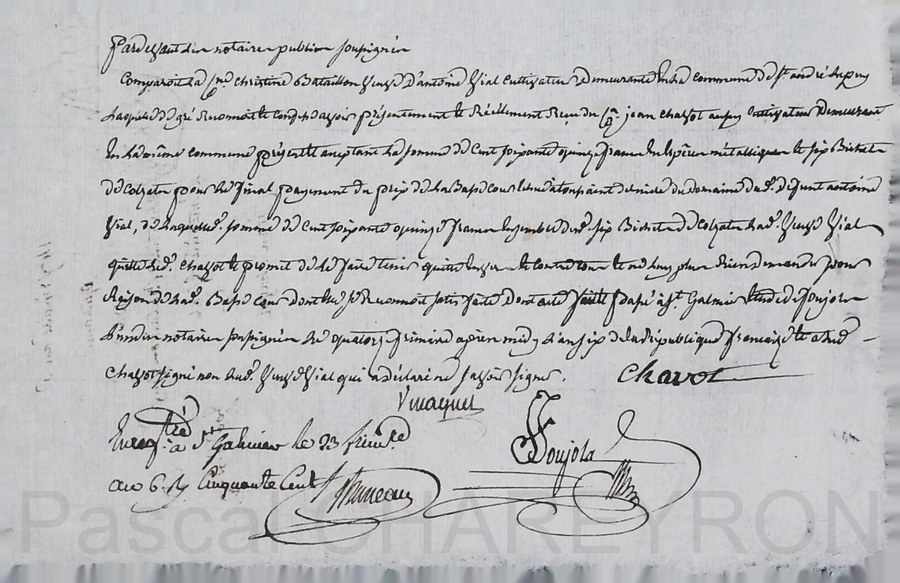 Pardevant les notaires publics soussignés
Comparoit la Cne. Christine Bataillon veuve d'antoine Vial cultivateur demeurante en la commune de St. andré le puy
laquelle de gré reconnoit et confesse avoir présentement et réellement reçu du Cn. jean Chavot aussy cultivateur demeurant
en la même commune présent et acceptant la somme de cent soixante quinze francs en espèces métalliques et six Bichets
de Colzats pour le final payement du prix de la Basse cour du domaine dud. défunt antoine
Vial, de laquelle. somme de cent soixante quinze francs ensemble desd. six Bichets de Colzats lad. veuve Vial
quitte led. Chavot et promet de le faire tenir quitte envers et contre tous et ne luy plus rien demander pour
Raison de lad. Basse cour dont elle se reconnoit satisfaite Dont acte fait et passé à St. Galmier étude de Soujola
l'un des notaires soussignés le quatorze frimaire après midy l'an six de la République française et a led.
Chavot signé non lad. veuve Vial qui a déclaré ne savoir signer.
Chavot
Soujola
Enregtré à St. Galmier le 23 frimre
an 6. R. Cinquante Cent
Pascal CHAREYRON